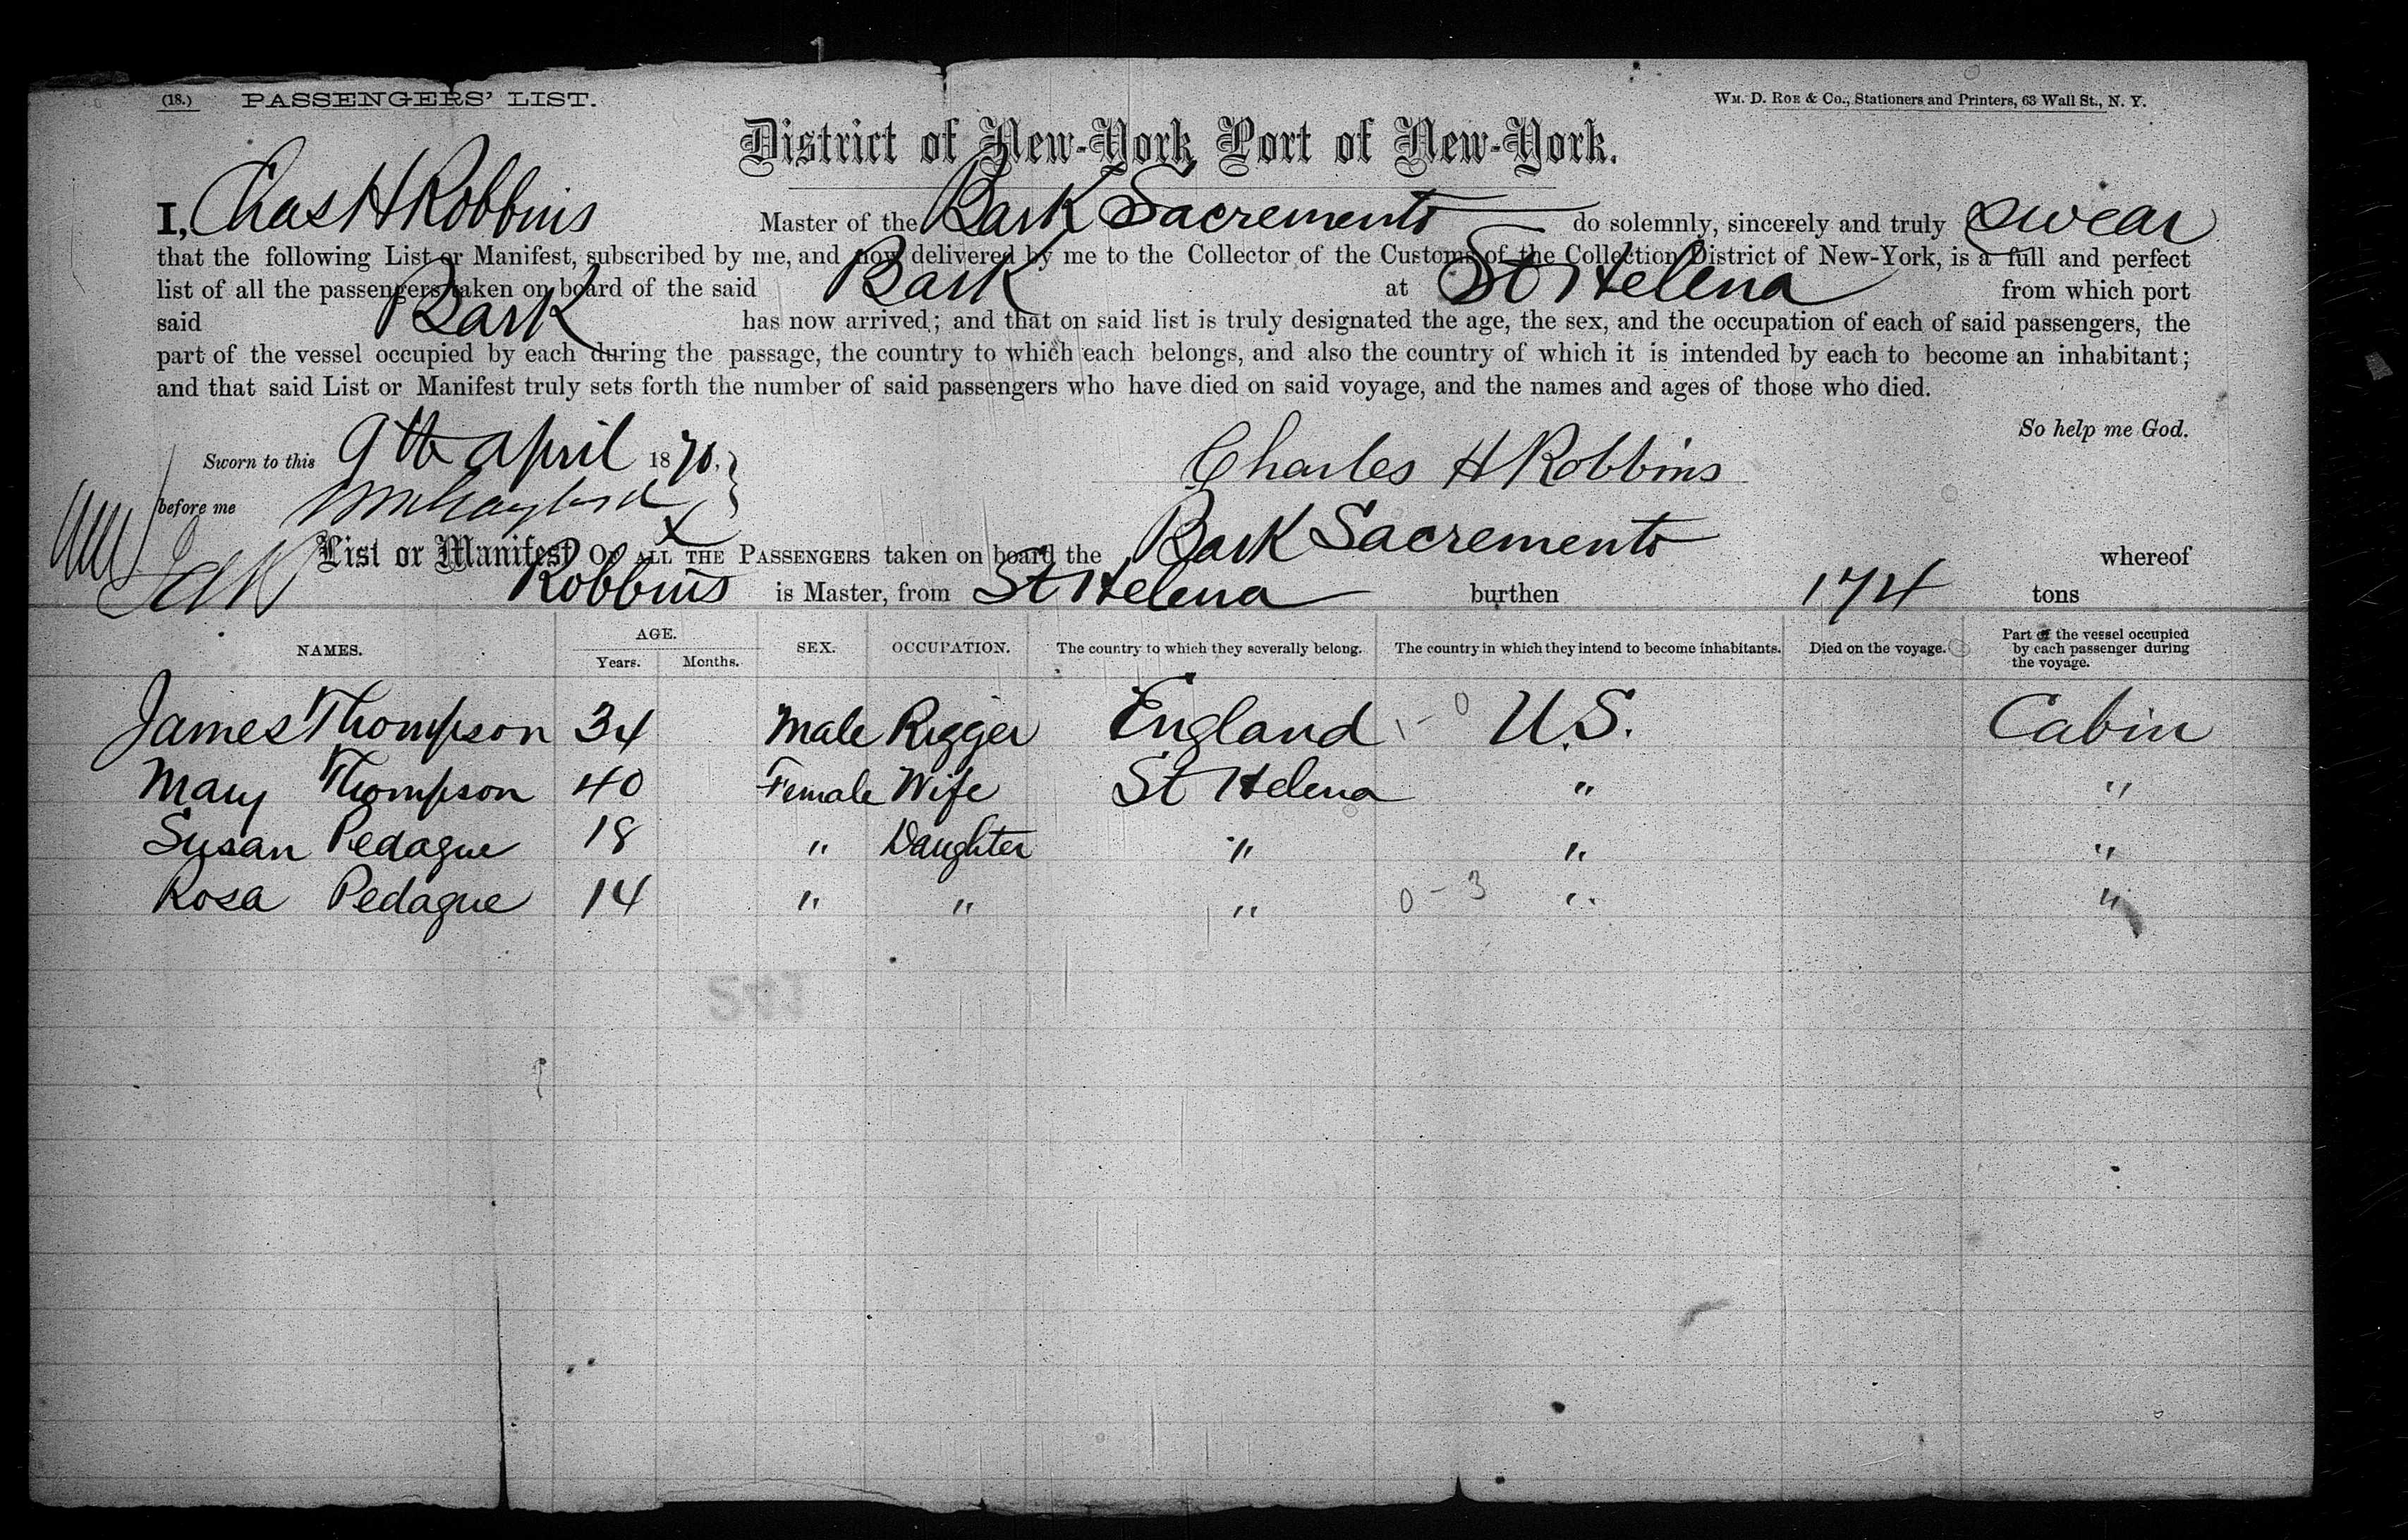 1
(18.) PASSENGERS' LIST. WM. D. ROE & Co., Stationers and Printers, 63 Wall St., N. Y.
District of New-York Port of New-York.
I, Chas H Robbins Master of the Bark Sacremento do solemnly, sincerely and truly swear
that the following List or Manifest, subscribed by me, and now delivered by me to the Collector of the Customs of the Collection District of New-York, is a full and perfect
list of all the passengers taken on board of the said Bark at St Helena from which port
said Bark has now arrived; and that on said list is truly designated the age, the sex, and the occupation of each of said passengers, the
part of the vessel occupied by each during the passage, the country to which each belongs, and also the country of which it is intended by each to become an inhabitant;
and that said List or Manifest truly sets forth the number of said passengers who have died on said voyage, and the names and ages of those who died.
So help me God.
Sworn to this 9th April 1870. Charles H Robbins
before me
List or Manifest OF ALL THE PASSENGERS taken on board the Bark Sacremento whereof
Robbins is Master, from St Helena burthen 174 tons
NAMES. AGE. Years. Months. SEX. OCCUPATION. The country to which they severally belong. The country in which they intend to become inhabitants. Died on the voyage. Part of the vessel occupied by each passenger during the voyage.
James Thompson 34 Male Rigger England 1-0 U.S. Cabin
Mary Thompson 40 Female Wife St Helena " "
Susan Pedague 18 " Daughter " " "
Rosa Pedague 14 " " " 0-3 " "